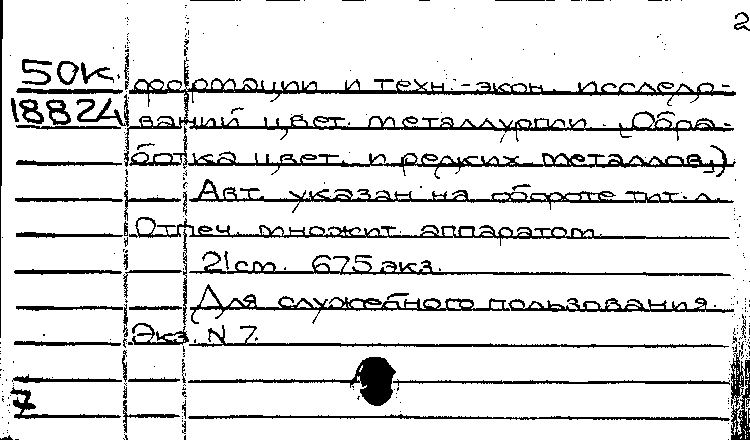 2
50к. формации и техн.-экон. исследо-
18824 ваний цвет. металлургии. (Обра-
ботка цвет. и редких металлов.)
Авт. указан на обороте тит. л.
Отпеч. множит. аппаратом.
21 см. 675 экз.
Для служебного пользования.
Экз. N 7.
7